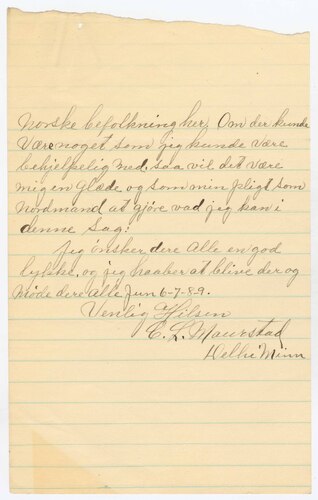 Norske befolkning her, Om der kunde
være noget som jeg kunde være
behjelpelig med, saa vil det være
mig en Glæde og som min pligt som
Nordmand at gjöre vad jeg kan i
denne Sag!
Jeg önsker dere Alle en god
lykke, og jeg haaber at blive der og
Möde dere Alle Jun 6-7-8-9.
Venlig Hilsen
E. L. Maurstad
Delhi Minn